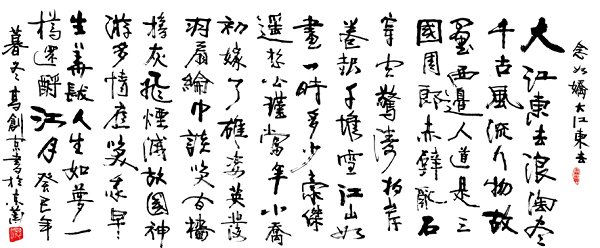 念奴嬌大江東去
大江東去浪淘盡
千古風流人物故
壘西邊人道是三
國周郎赤壁亂石
穿空驚濤拍岸
卷起千堆雪江山如
畫一時多少豪傑
遥想公瑾當年小喬
初嫁了雄姿英發
羽扇綸巾談笑間檣
櫓灰飛煙滅故國神
游多情應笑我早
生華髮人生如夢一
樽還酹江月癸巳年
暮冬高創京書於